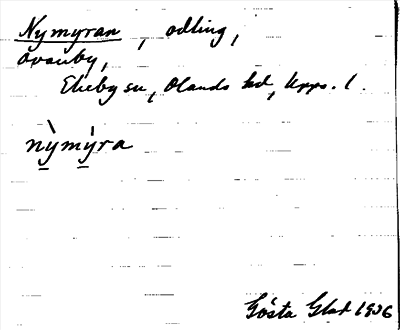 Nymyran, odling,
ovanby,
Ekeby sn, Olands hd, Upps. l.
nỳmýra
Gösta Glad 1906